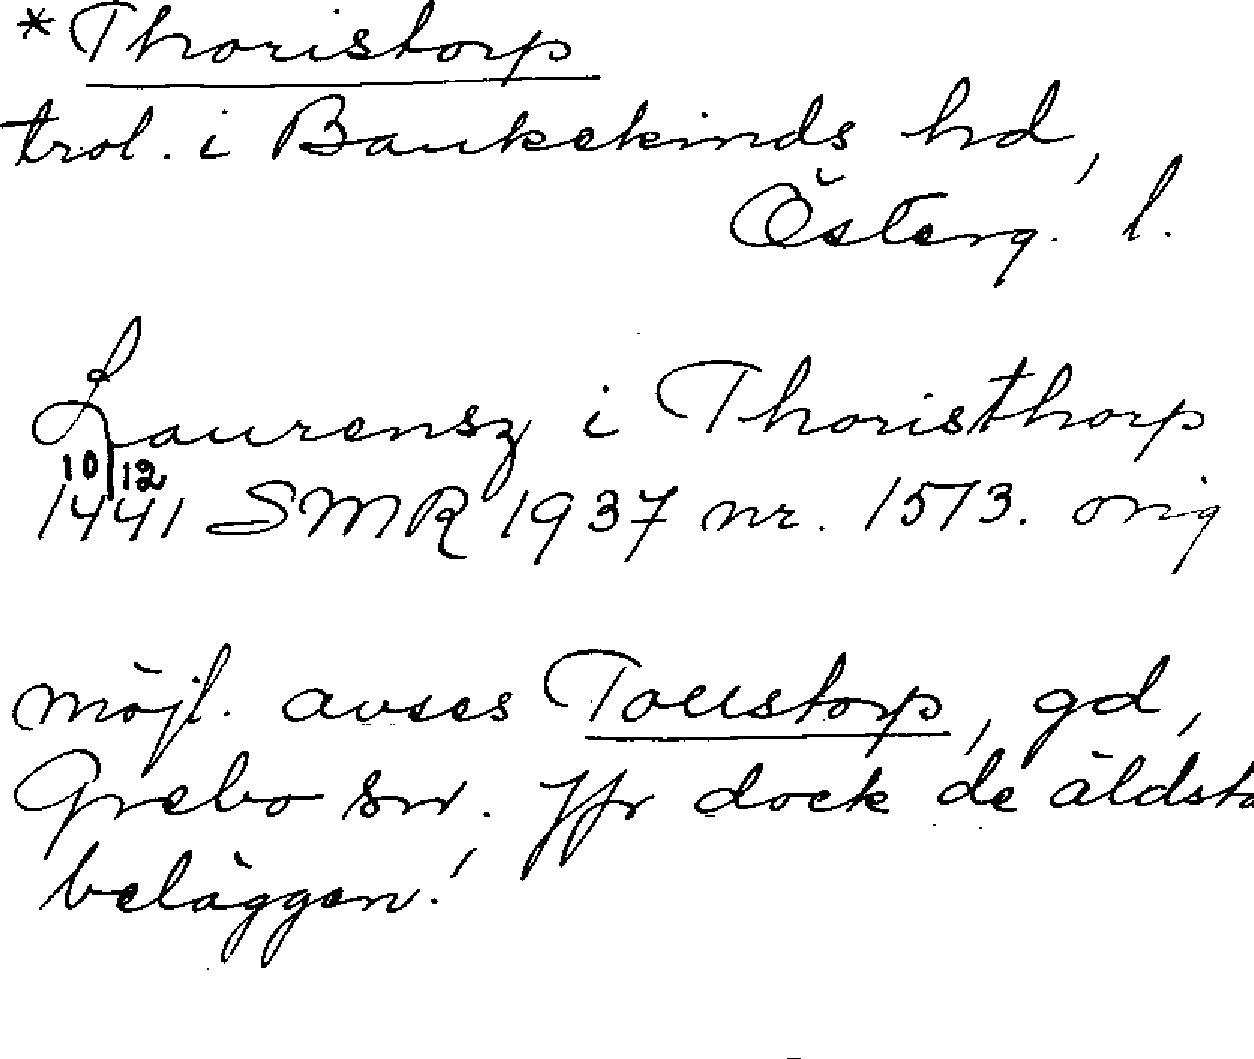 *Thoristorp
trol. i Bankekinds hd,
Österg. l.
Laurensz i Thoristhorp
10/12
1441 SMR 1937 nr. 1573. orig
möjl. avses Tollstorp, gd,
Grebo sn. Jfr dock de äldsta
beläggen!